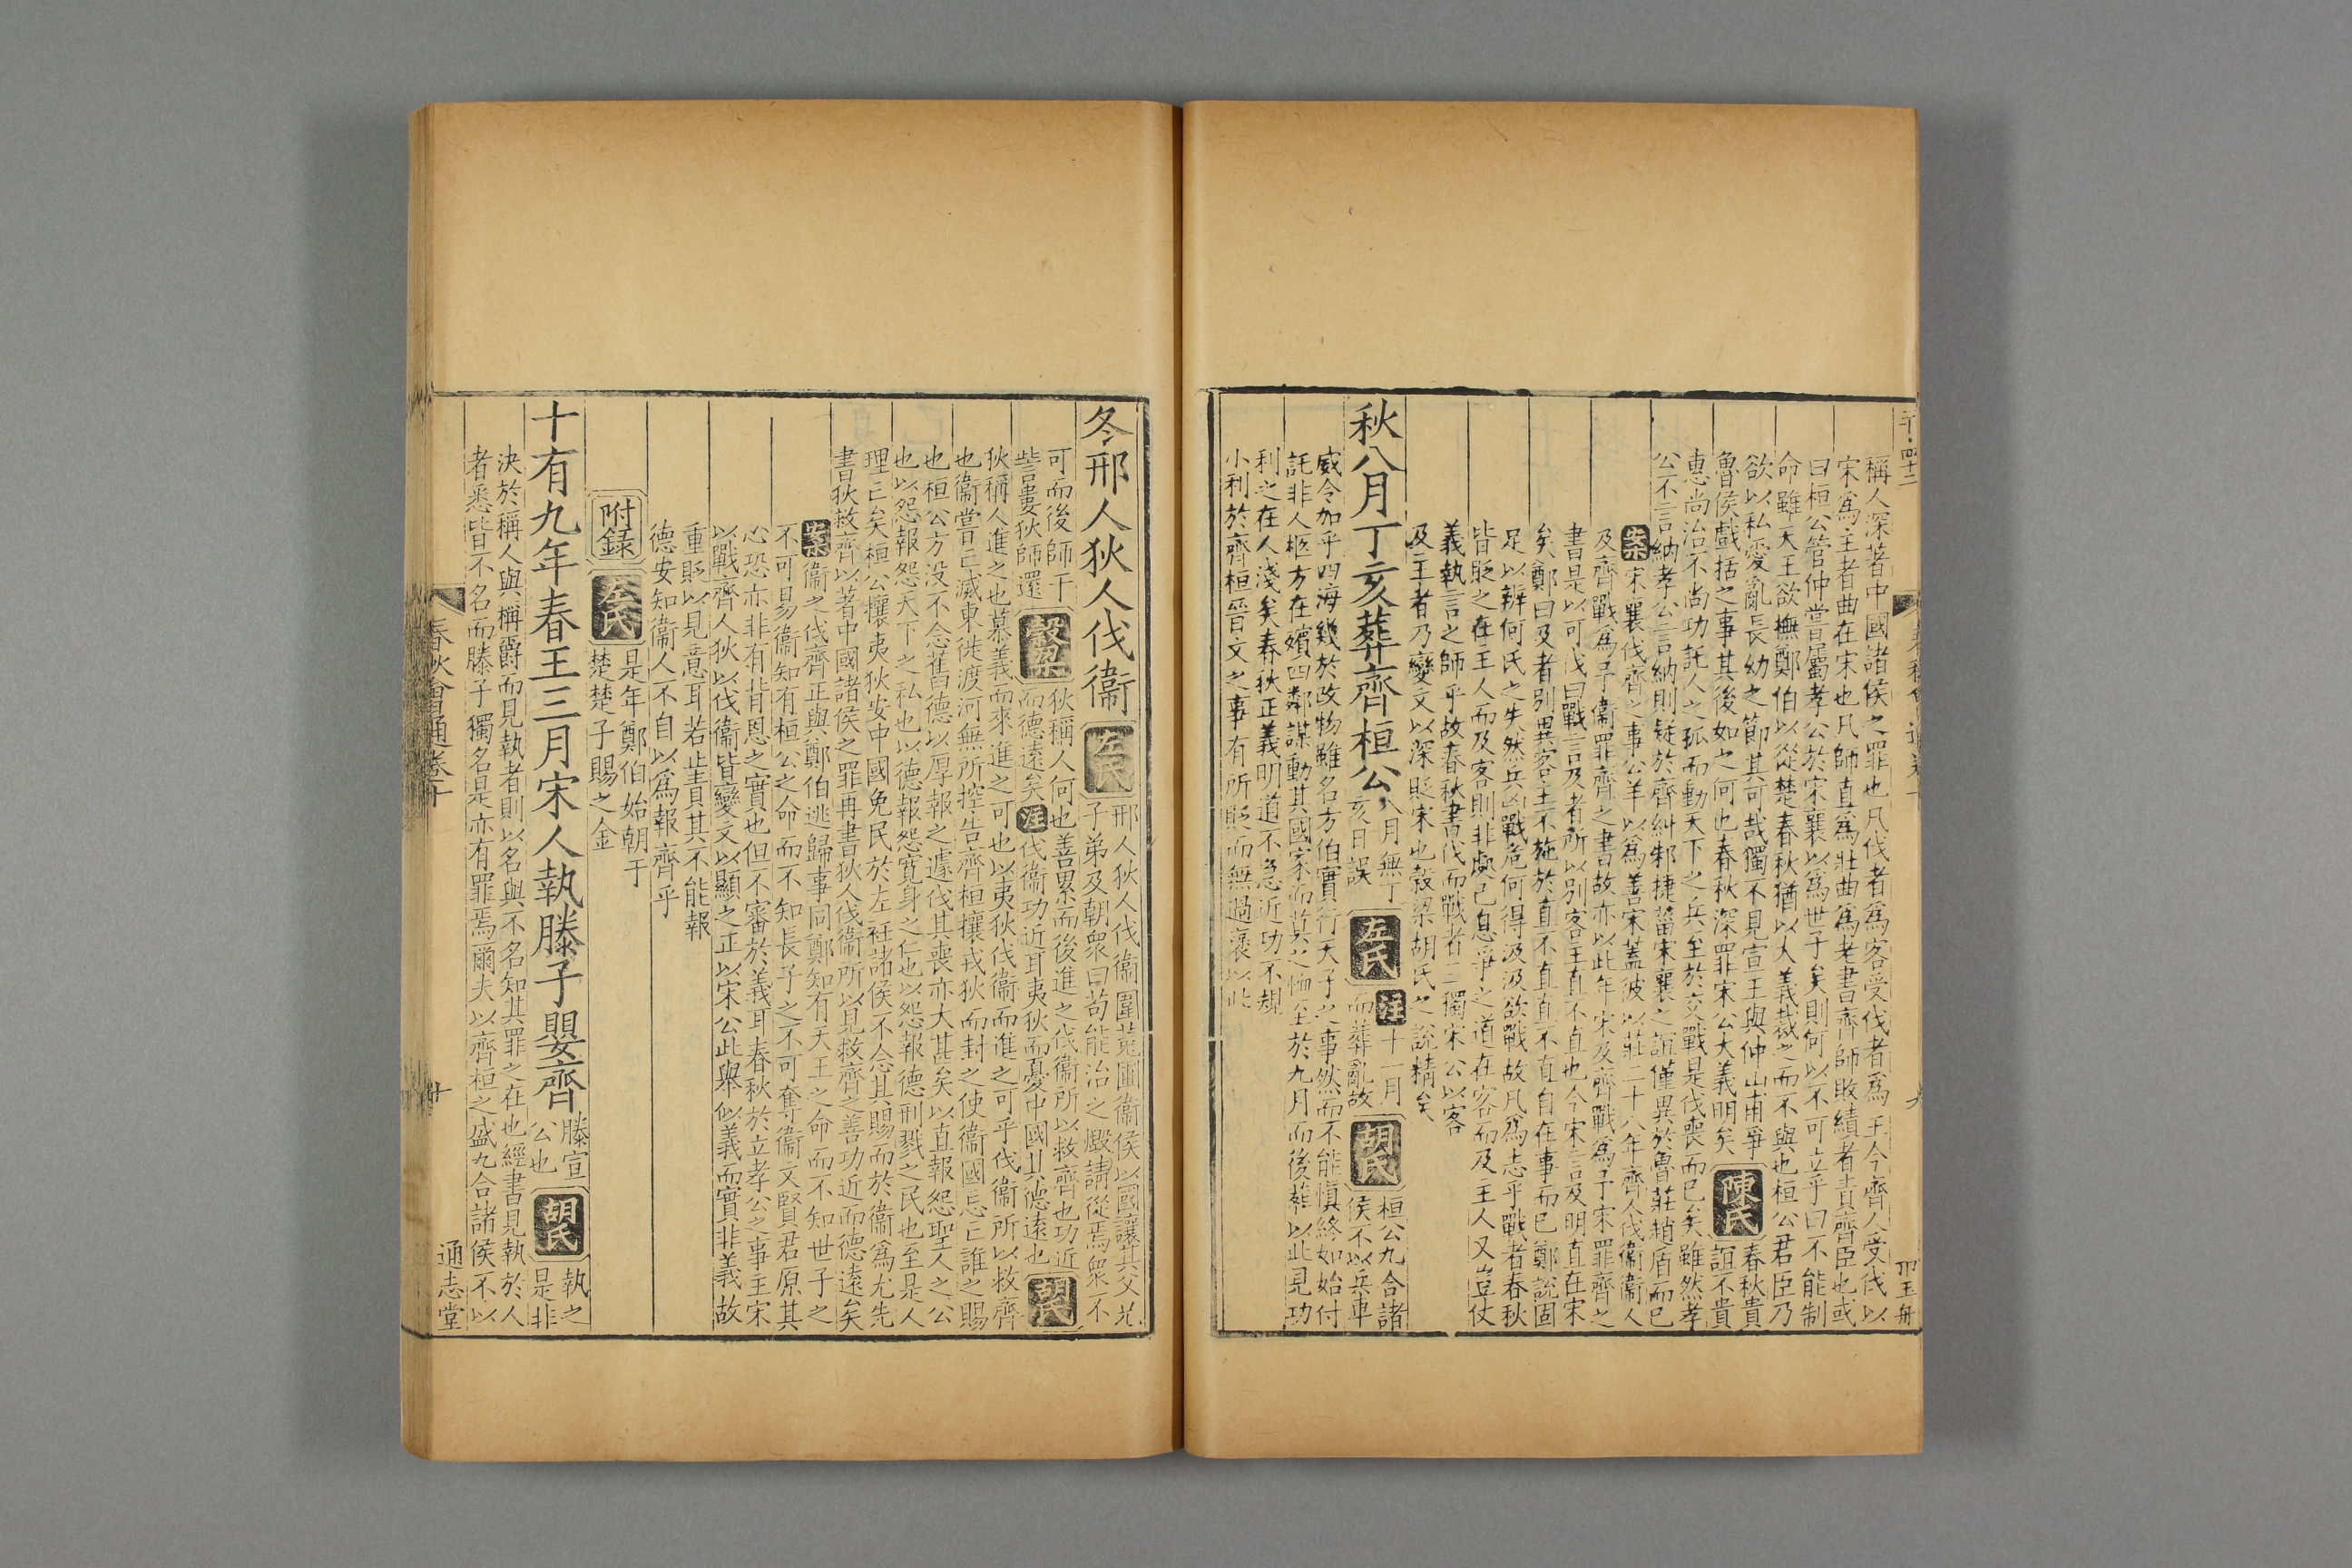 稱人深著中國諸侯之罪也凡伐者爲客受伐者爲主今齊人受伐以
宋爲主者曲在宋也凡師直爲壯曲爲老書齊師敗績者責齊臣也或
曰桓公管仲嘗屬孝公於宋襄以爲世子矣則何以不可立乎曰不能制
命雖天王欲撫鄭伯以從楚春秋猶以大義裁之而不與也桓公君臣乃
欲以私愛亂長幼之節其可哉獨不見宣王與仲山甫爭
魯侯戲括之事其後如之何也春秋深罪宋公大義明矣
陳氏
春秋貴
誼不貴
惠尚治不尚功託人之孤而動天下之兵至於交戰是伐喪而已矣雖然孝
公不言納孝公言納則疑於齊糾邾捷菑宋襄之誼僅異於魯莊趙盾而已
案宋襄伐齊之事公羊以爲善宋蓋彼以莊二十八年齊人伐衞衞人
及齊戰爲予衞罪齊之書故亦以此年宋及齊戰爲予宋罪齊之
書是以可伐曰戰言及者所以別客主直不直也今宋言及明直在宋
矣鄭曰及者別異客主不施於直不直直不直自在事而已鄭說固
足以辨何氏之失然兵凶戰危何得汲汲欲戰故凡爲志乎戰者春秋
皆貶之在主人而及客則非處己息爭之道在客而及主人又豈仗
義執言之師乎故春秋書伐而戰者三獨宋公以客
及主者乃變文以深貶宋也穀梁胡氏之說精矣
秋八月丁亥葬齊桓公
八月無丁
亥日誤
左氏
注十一月
而葬亂故
胡氏
桓公九合諸
侯不以兵車
威令加乎四海幾於改物雖名方伯實行天子之事然而不能愼終如始付
託非人柩方在殯四鄰謀動其國家而莫之恤至於九月而後葬以此見功
利之在人淺矣春秋正義明道不急近功不規
小利於齊桓晉文之事有所貶而無過褒以此
冬邢人狄人伐衞
左氏
邢人狄人伐衞圍菟圃衞侯以國讓其父兄
子弟及朝衆曰苟能治之燬請從焉衆不
可而後師于
訾婁狄師還
穀梁
狄稱人何也善累而後進之伐衞所以救齊也功近
而德遠矣注伐衞功近耳夷狄而憂中國其德遠也
胡氏
狄稱人進之也慕義而來進之可也以夷狄伐衞而進之可乎伐衞所以救齊
也衞嘗已滅東徙渡河無所控告齊桓攘戎狄而封之使衞國忘亡誰之賜
也桓公方没不念舊德以厚報之遽伐其喪亦大甚矣以直報怨聖人之公
也以怨報怨天下之私也以德報怨寛身之仁也以怨報德刑戮之民也至是人
理亡矣桓公攘夷狄安中國免民於左衽諸侯不念其賜而於衞爲尤先
書狄救齊以著中國諸侯之罪再書狄人伐衞所以見救齊之善功近而德遠矣
案衞之伐齊正與鄭伯逃歸事同鄭知有天王之命而不知世子之
不可易衞知有桓公之命而不知長子之不可奪衞文賢君原其
心恐亦非有背恩之實也但不審於義耳春秋於立孝公之事主宋
以戰齊人狄以伐衞皆變文以顯之正以宋公此舉似義而實非義故
重貶以見意耳若止責其不能報
德安知衞人不自以爲報齊乎
附錄
左氏
是年鄭伯始朝于
楚楚子賜之金
十有九年春王三月宋人執滕子嬰齊
滕宣
公也
胡氏
執之
是非
決於稱人與稱爵而見執者則以名與不名知其罪之在也經書見執於人
者悉皆不名而滕子獨名是亦有罪焉爾夫以齊桓之盛九合諸侯不以
春秋會通卷十
通志堂